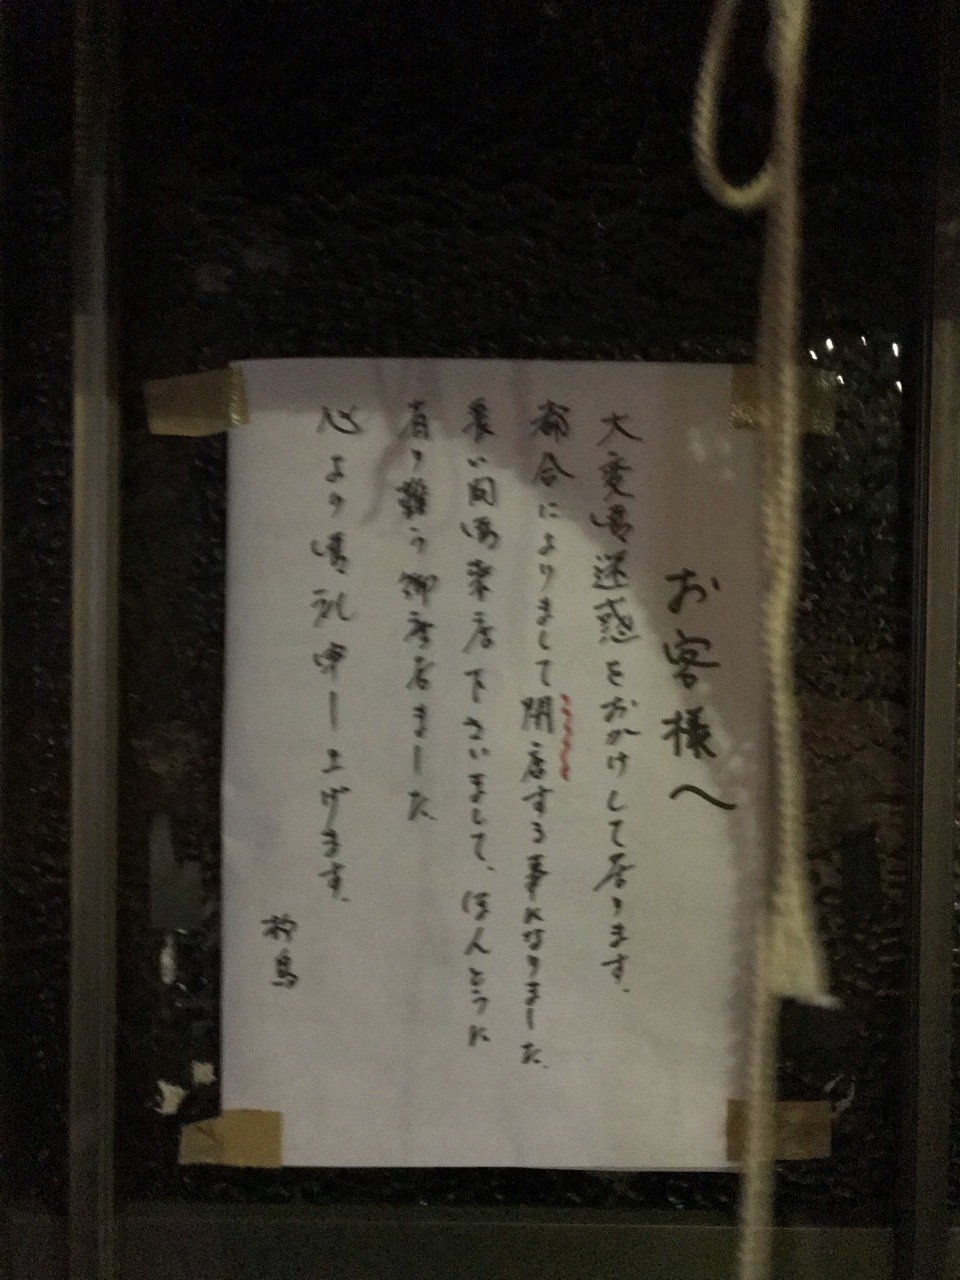 お客様へ
大変御迷惑をおかけして居ります。
都合によりまして閉店する事になりました。
長い間御来店下さいまして、ほんとうに
有り難う御座居ました
心より御礼申し上げます。